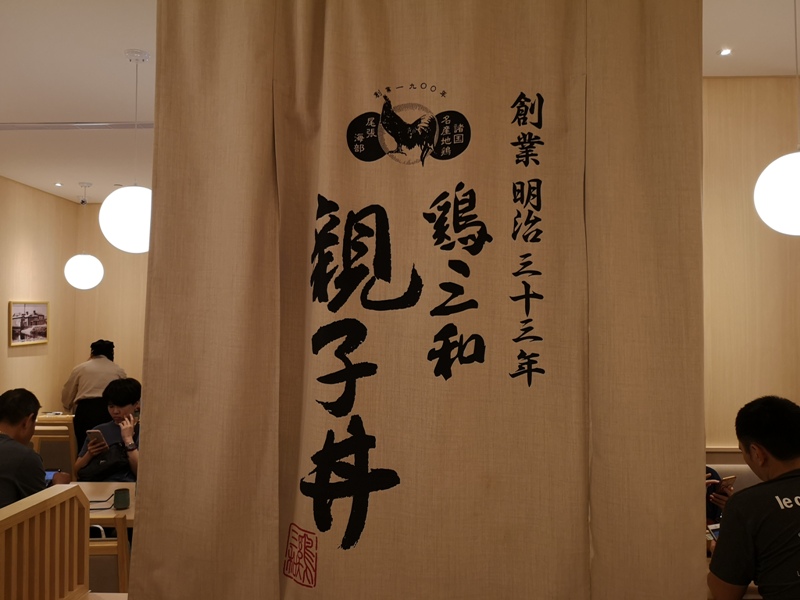 創業明治三十三年
創業一九〇〇年
諸国
名産地鶏
尾張
海部
鶏三和
親子丼
le c